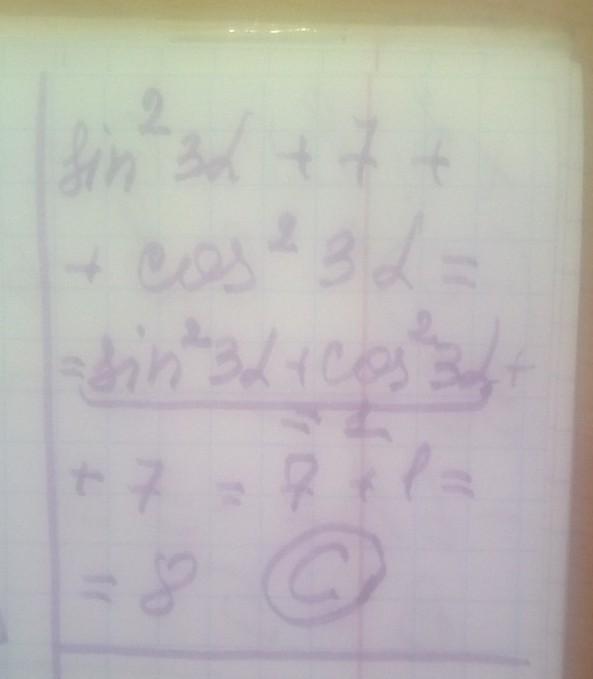 sin² 3α + 7 +
+ cos² 3α =
= sin² 3α + cos² 3α +
= 1
+ 7 = 7 + 1 =
= 8 C